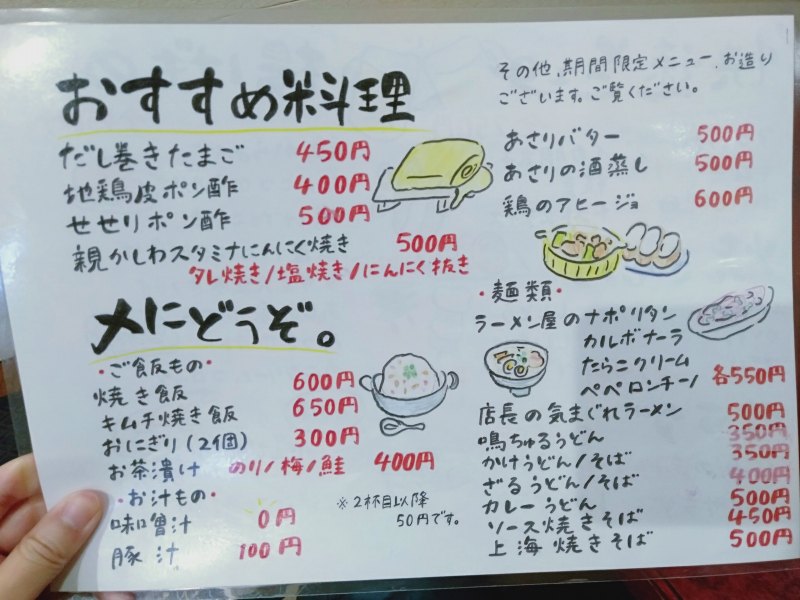 おすすめ米斗理
だし巻きたまご 450円
地鶏皮ポン酢 400円
せせりポン酢 500円
親かしわスタミナにんにく焼き 500円
タレ焼き/塩焼き/にんにく抜き
〆にどうぞ。
・ご飯もの・
焼き飯 600円
キムチ焼き飯 650円
おにぎり(2個) 300円
お茶漬け のり/梅/鮭 400円
・お汁もの・
味噌汁 0円
豚汁 100円
※2杯目以降
50円です。
その他、期間限定メニュー、お造り
ございます。ご覧ください。
あさりバター 500円
あさりの酒蒸し 500円
鶏のアヒージョ 600円
・麺類・
ラーメン屋のナポリタン
カルボナーラ
たらこクリーム
ペペロンチーノ 各550円
店長の気まぐれラーメン 500円
鳴ちゅるうどん 350円
かけうどん/そば 350円
ざるうどん/そば 400円
カレーうどん 500円
ソース焼きそば 450円
上海焼きそば 500円